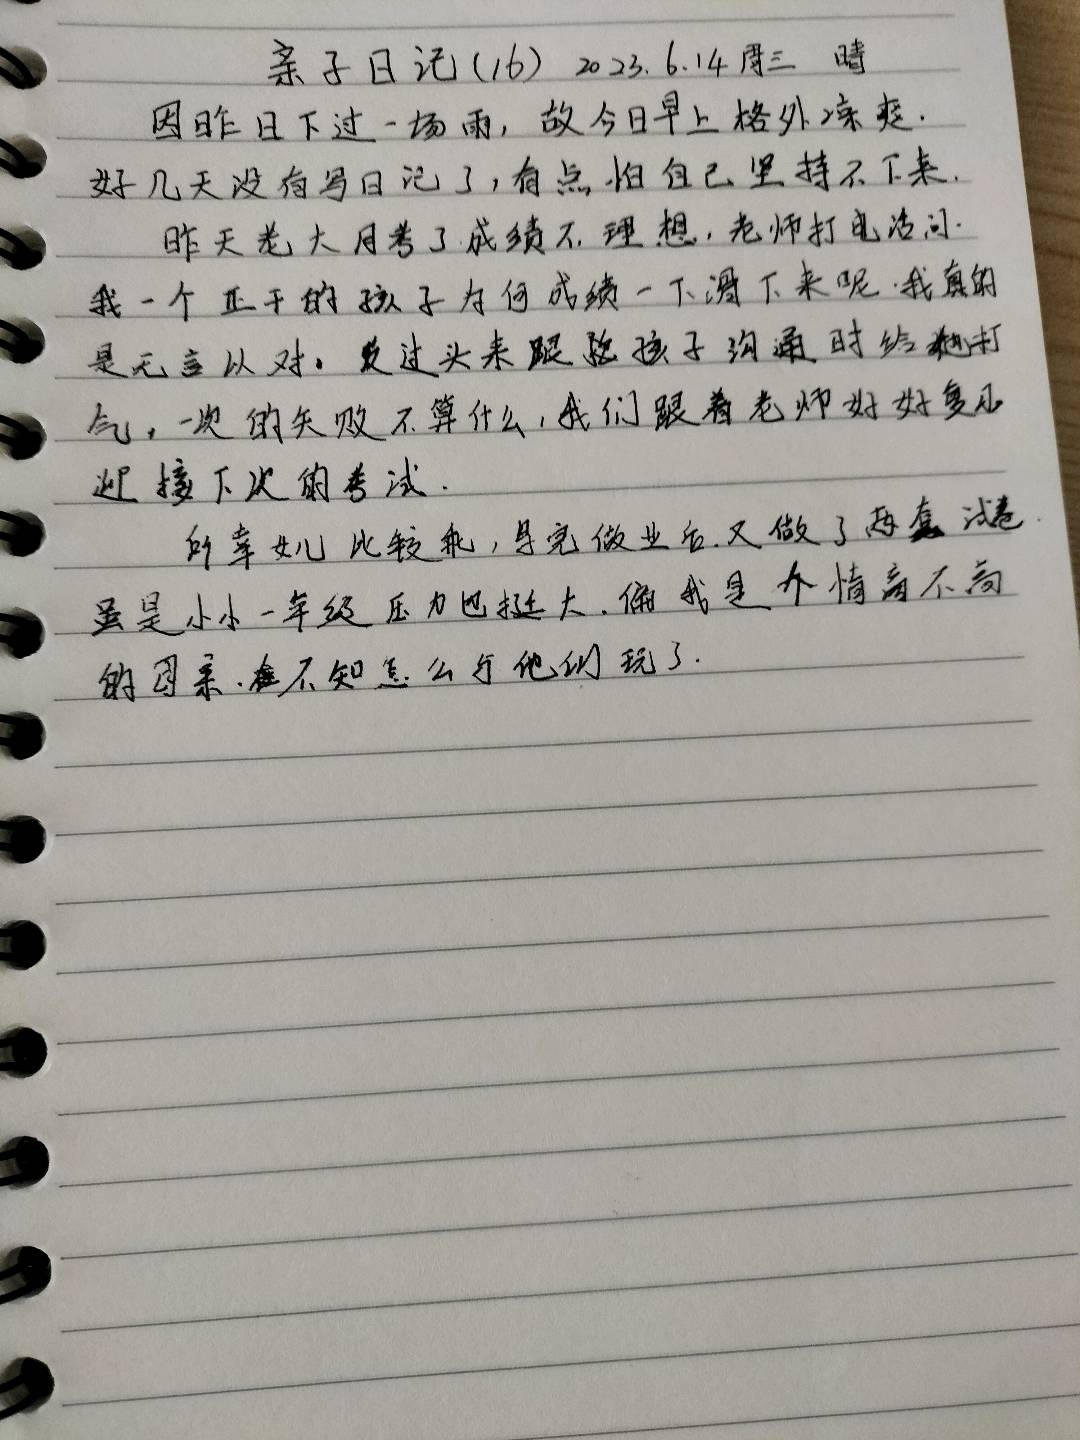 亲子日记(16) 2023.6.14 周三 晴
因昨日下过一场雨,故今日早上格外凉爽.
好几天没有写日记了,有点怕自己坚持不下来.
昨天老大月考了成绩不理想,老师打电话问.
我一个正干的孩子为何成绩一下滑下来呢.我真的
是无言以对。反过头来跟孩子沟通时给她打
气,一次的失败不算什么,我们跟着老师好好复习
迎接下次的考试.
所幸女儿比较乖,写完做业后又做了两套试卷.
虽是小小一年级压力也挺大.偏我是个情商不高
的母亲.不知怎么与他们玩了.